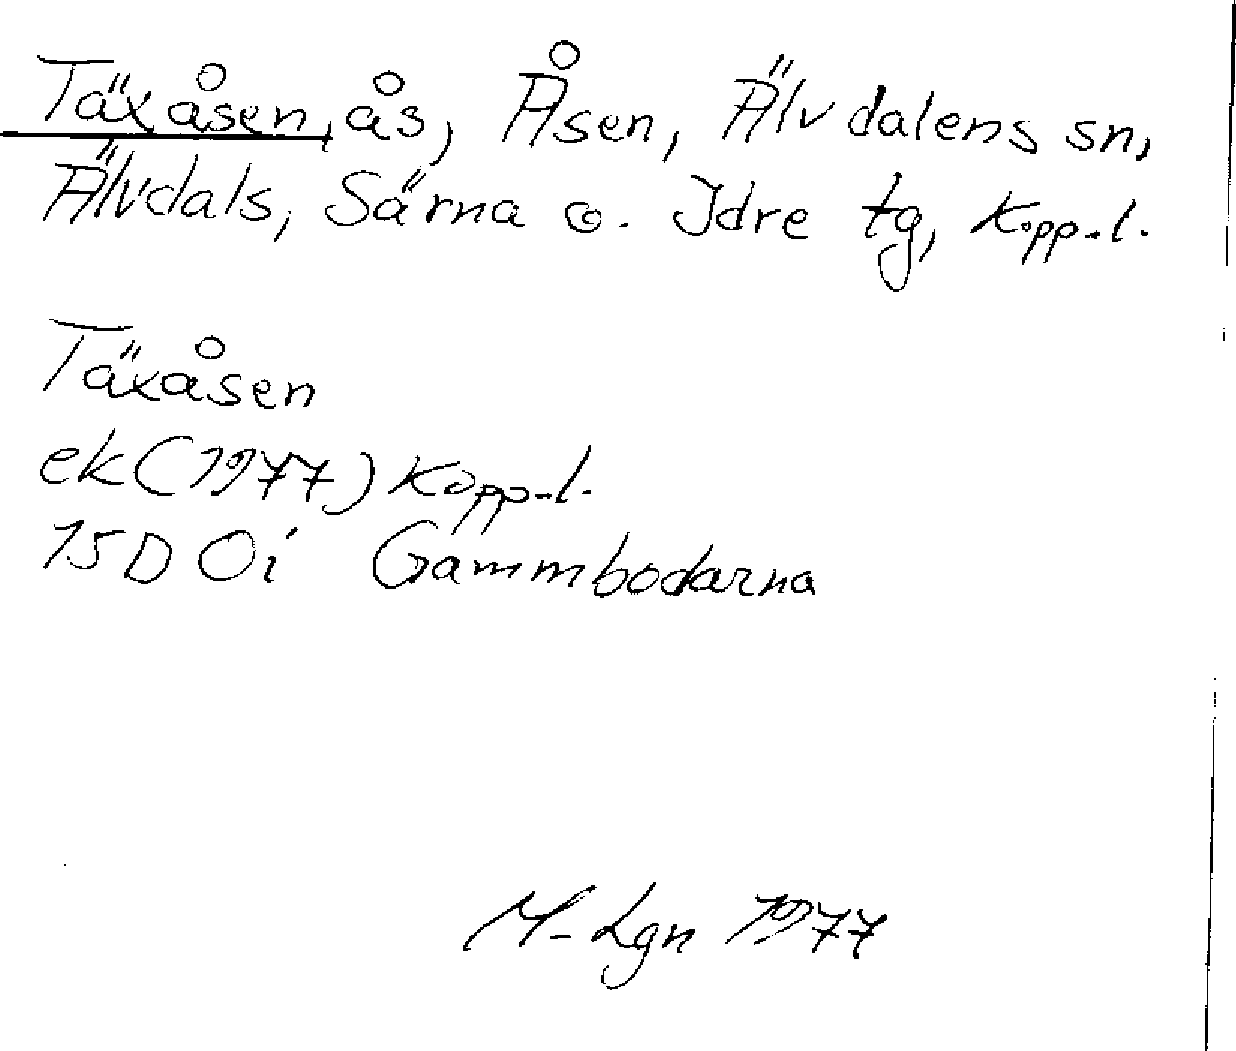 Täxåsen, ås, Åsen, Älvdalens sn,
Älvdals, Särna o. Idre tg, Kopp.l.
Täxåsen
ek (1977) Kopp.l.
15D 0i Gammbodarna
M-Lgn 1977